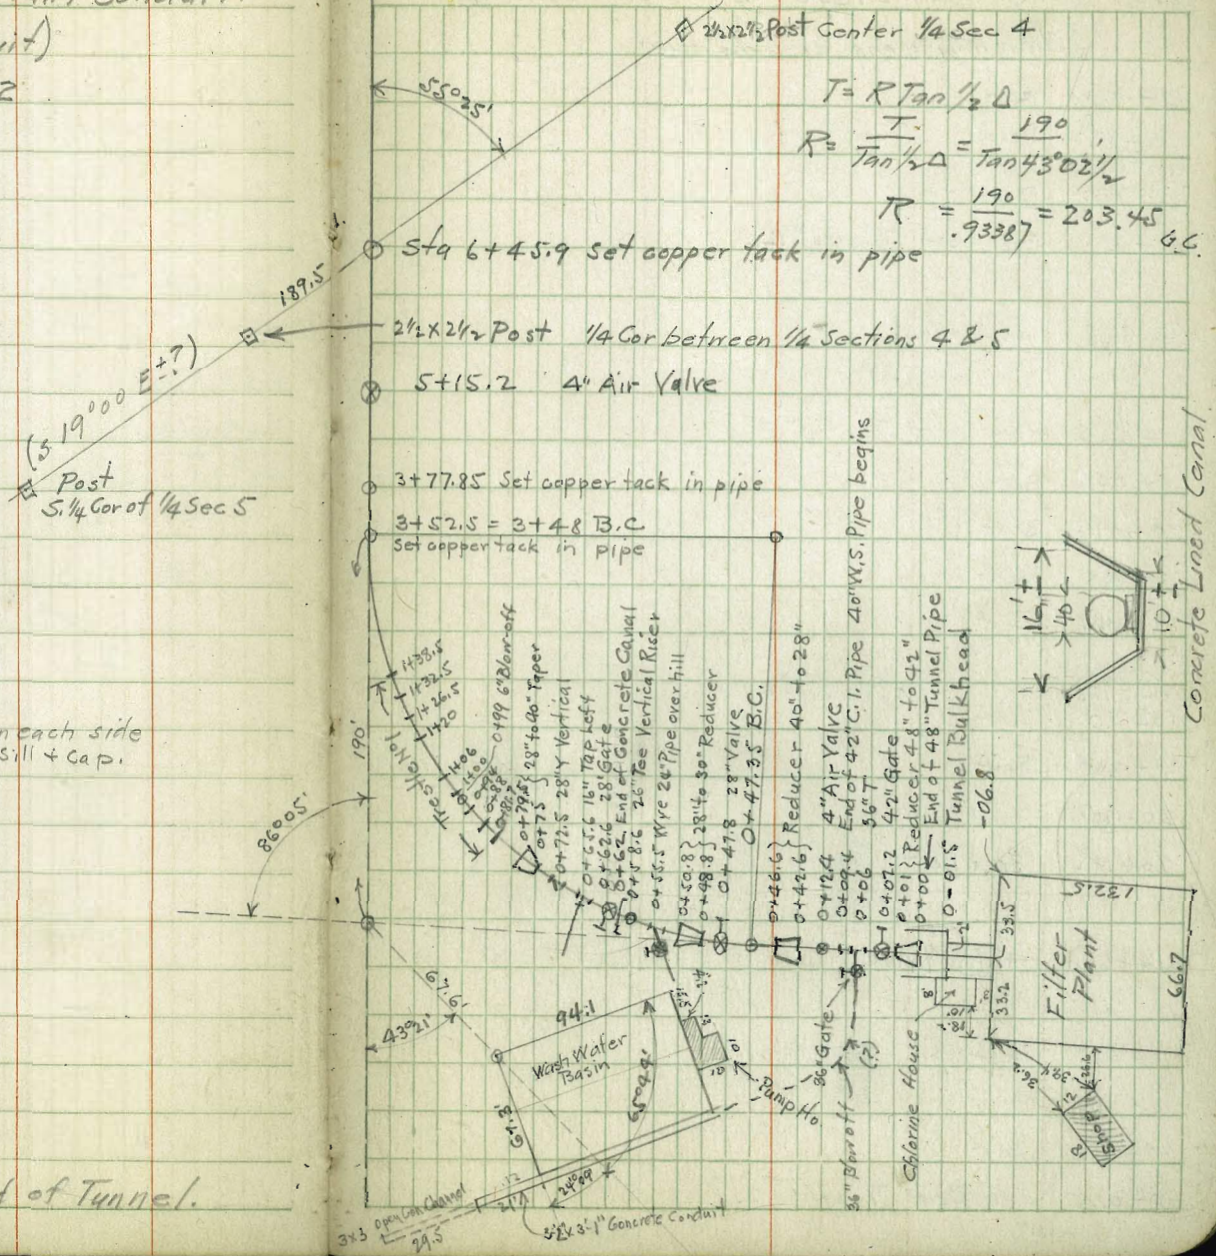 2½x2½ Post Center ¼ Sec 4
55°25'
T = R Tan ½ Δ
R = T / Tan ½ Δ = 190 / Tan 43°02'½
R = 190 / .93387 = 203.45
G.C.
Sta 6+45.9 set copper tack in pipe
189.5
2½ x 2½ Post ¼ Cor between ¼ Sections 4 & 5
5+15.2 4" Air Valve
(S 19°00 E±?)
Post
S.¼ Cor of ¼ Sec 5
3+77.85 Set copper tack in pipe
3+52.5 = 3+48 B.C
Set copper tack in pipe
n each side
Sill + Cap.
t of Tunnel.
190'
86°05'
1+38.5
1+32.5
1+26.5
1+20
Trestle No 1
1+06
1+00
0+99 6" Blow-off
0+79.5 } 28" to 40" Taper
0+75
0+72.5 28" Y Vertical
0+65.6 16" Tap Left
0+62.6 28" Gate
0+62 End of Concrete Canal
0+58.6 26" Tee Vertical Riser
0+55.5 Wye 24" Pipe over hill
0+50.8 } 28" to 30" Reducer
0+48.8
0+47.8 28" Valve
0+47.35 B.C.
0+46.6 } Reducer 40" to 28"
0+42.6
0+12.4 4" Air Valve
0+09.4 End of 42" C.I. Pipe 40" W.S. Pipe begins
0+06 36" T
0+07.2 42" Gate
0+01 } Reducer 48" to 42"
0+00 End of 48" Tunnel Pipe
0-01.5 Tunnel Bulkhead
-06.8
16'±
40
10'±
Concrete Lined Canal
132.5
33.5
33.2
66.7
Filter
Plant
2'
8'
36.2
39.4
26.6
12
Shop
67.6'
43°21'
94.1
Wash Water
Basin
65°04'
67.3'
10'
Pump Ho.
36" Gate
36" Blowoff
(?)
Chlorine House
24°09
21'
3½'x3'-1" Concrete Conduit
3x3 Open Con Channel
29.5